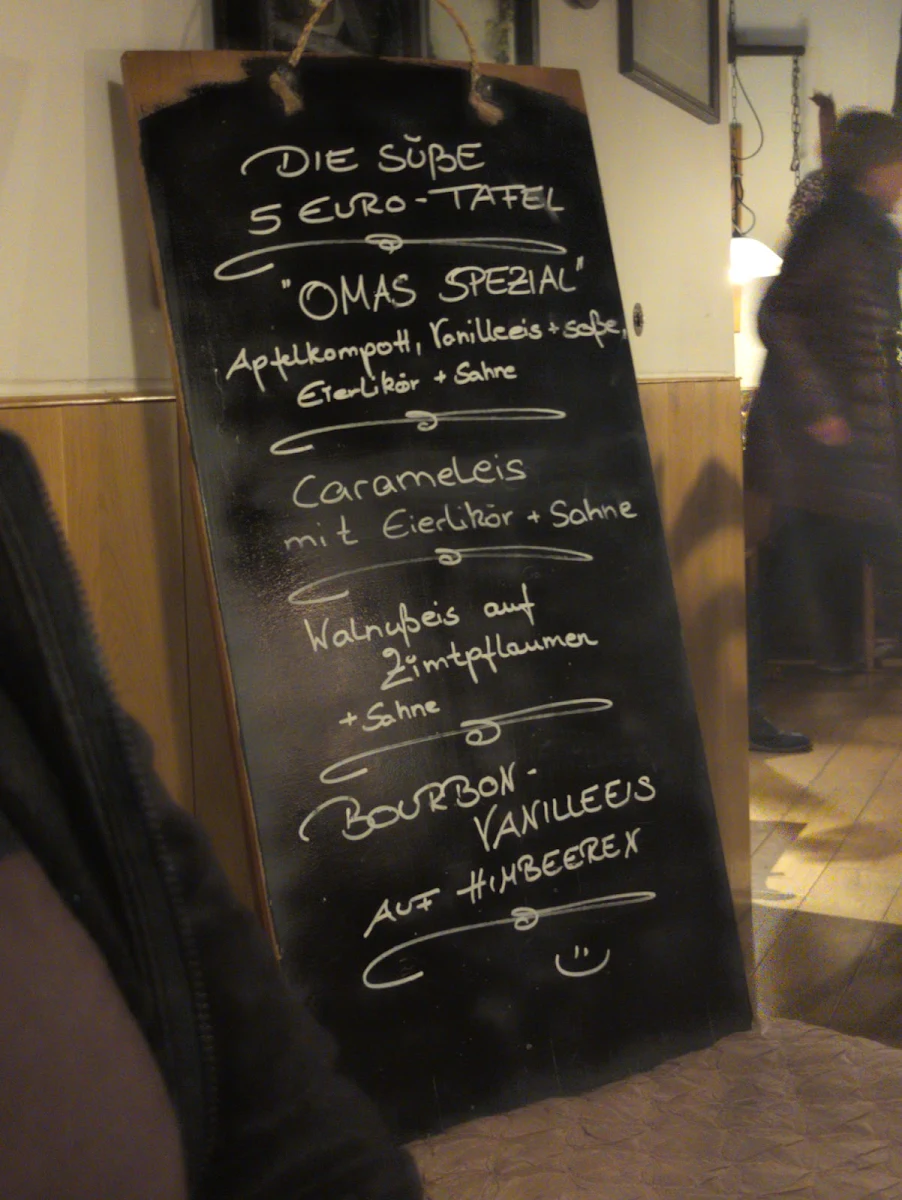 DIE SÜßE
5 EURO-TAFEL
"OMAS SPEZIAL"
Apfelkompott, Vanilleeis + soße,
Eierlikör + Sahne
Carameleis
mit Eierlikör + Sahne
Walnußeis auf
Zimtpflaumen
+ Sahne
BOURBON-
VANILLEEIS
AUF HIMBEEREN